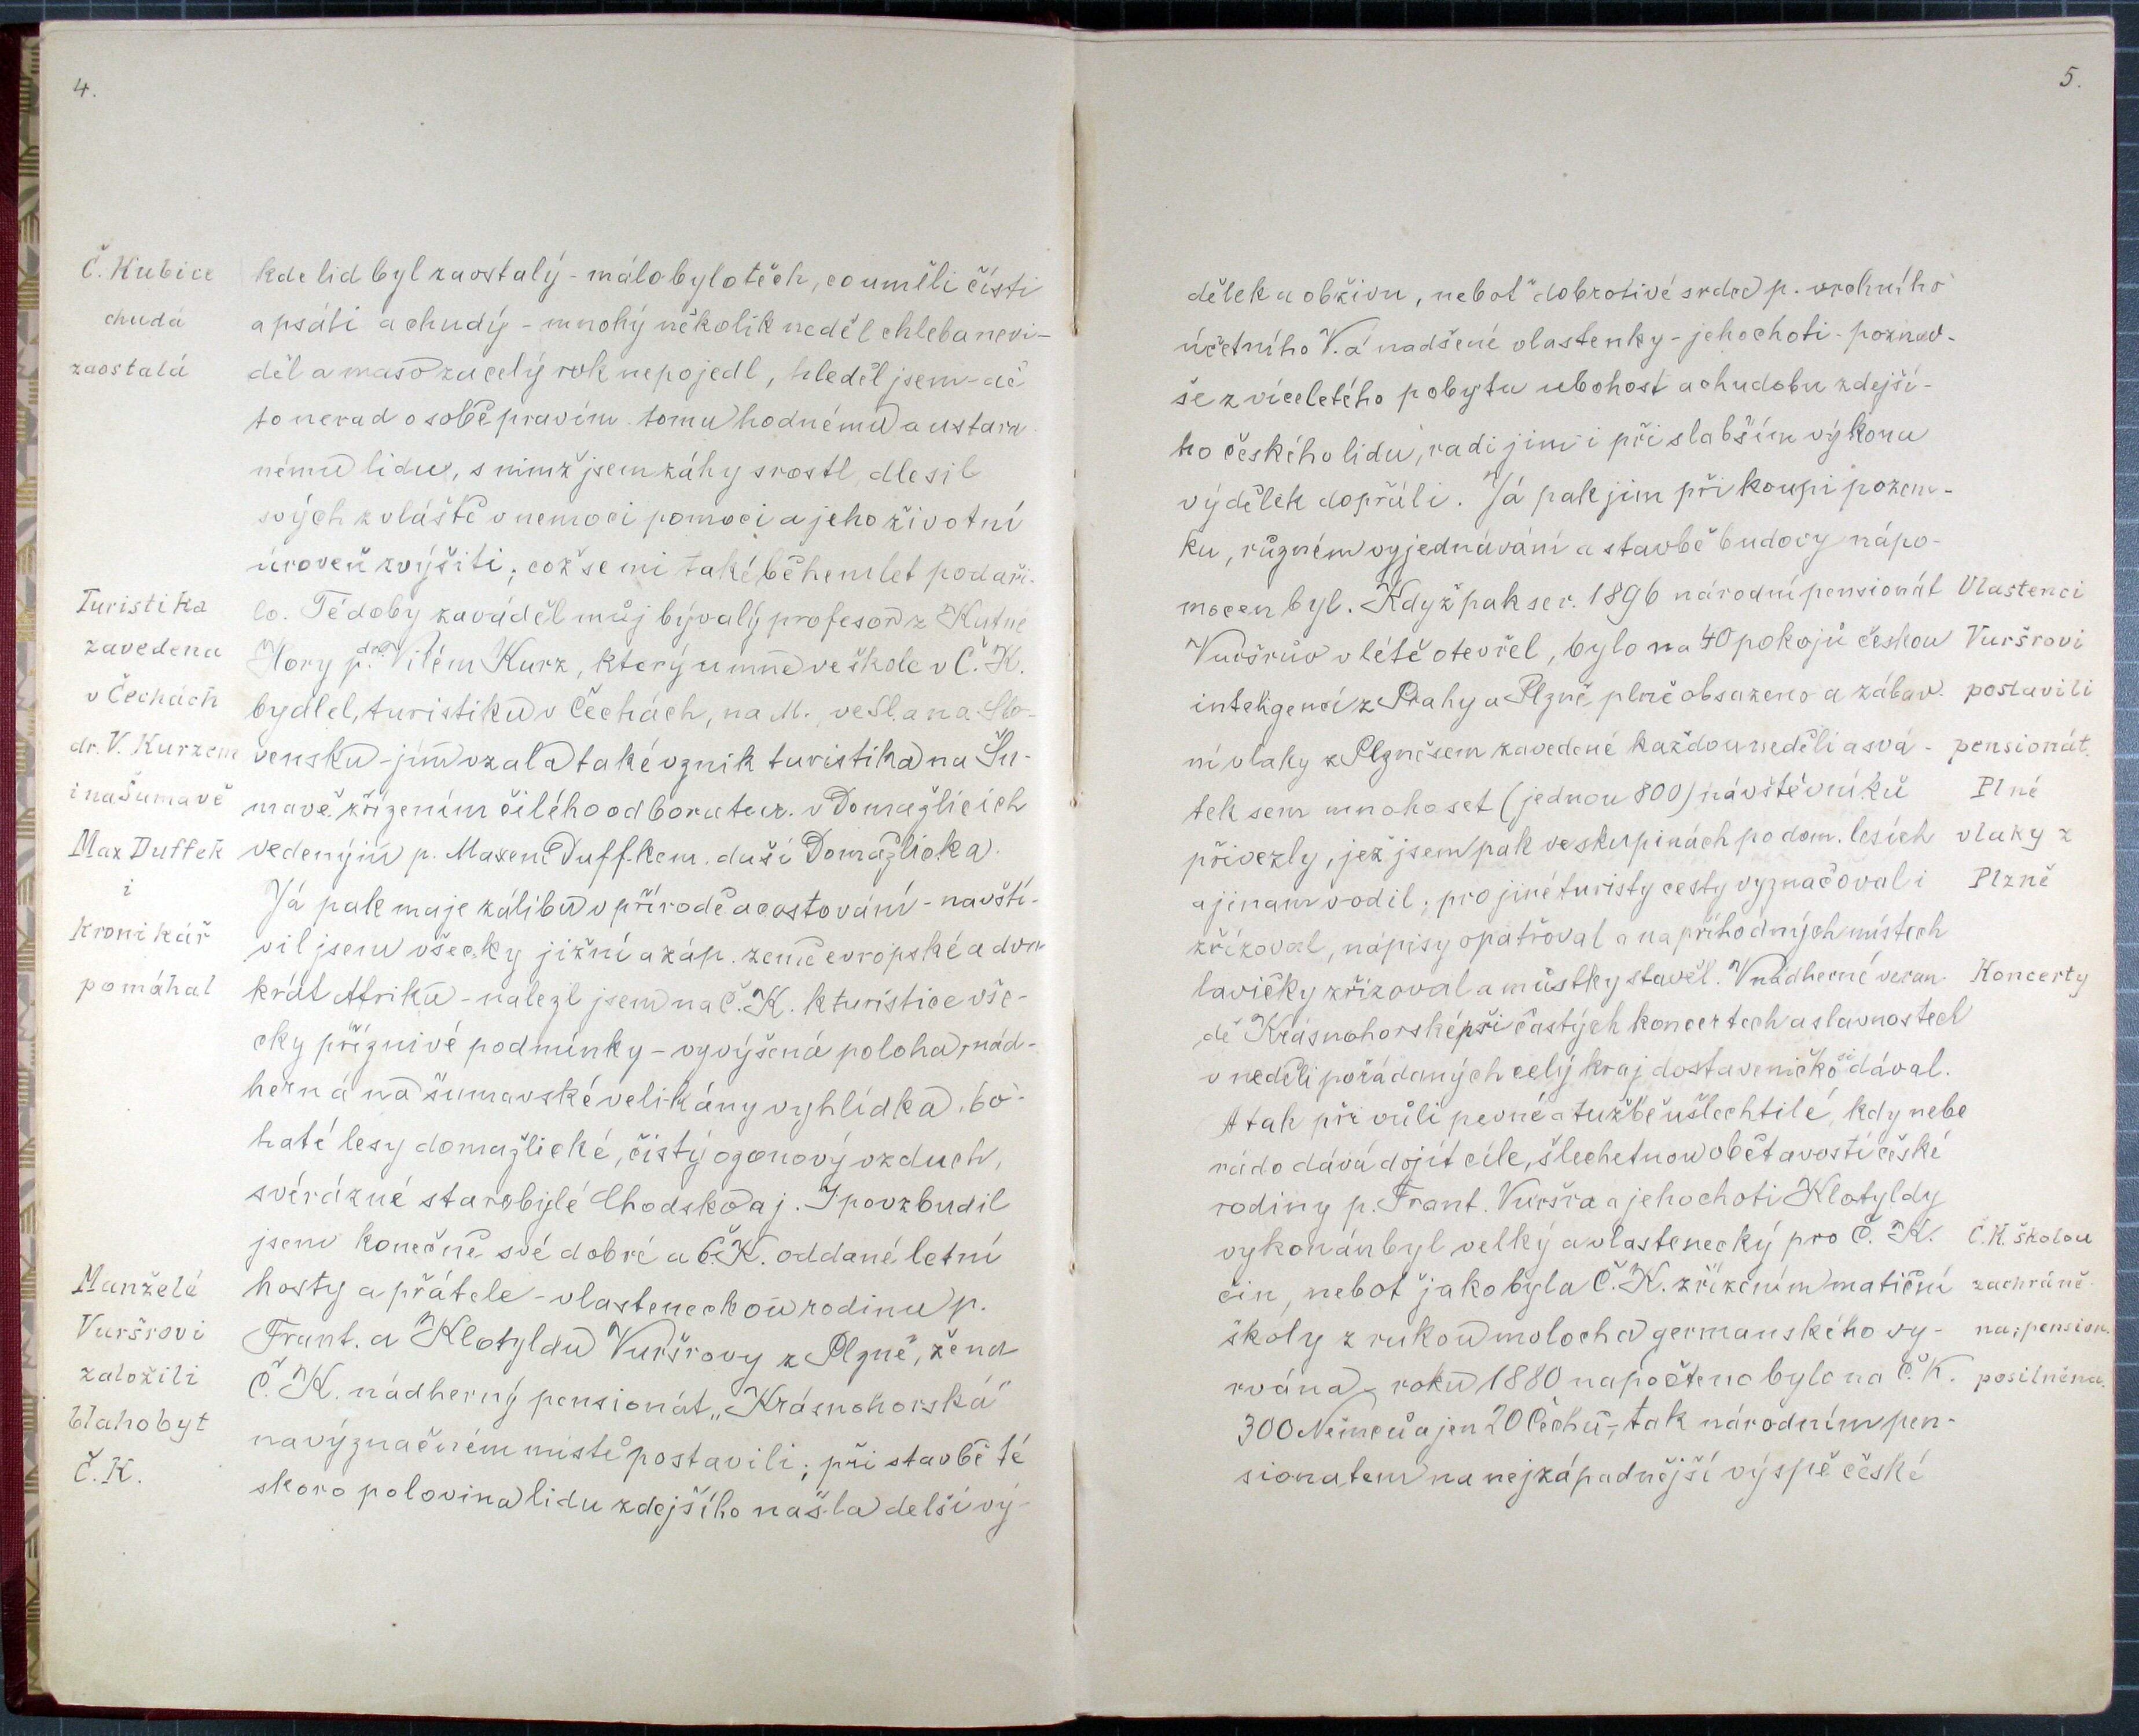 4.
Č. Kubice
chudá
zaostalá
kde lid byl zaostalý - málo bylo těch, co uměli čísti
a psáti a chudý - mnohý několik neděl chleba nevi-
děl a maso za celý rok nepojedl, hleděl jsem - ač
to nerad o sobě pravím - tomu hodnému a ustara-
nému lidu, s nímž jsem záhy srostl, dle sil
svých zvláště v nemoci pomoci a jeho životní
úroveň zvýšiti; což se mi také během let podaři-
Turistika
zavedena
v Čechách
dr. V. Kurzem
i na Šumavě
Max Duffek
i
kronikář
pomáhal
lo. Té doby zaváděl můj bývalý profesor z Kutné
Hory p. dr. Vilém Kurz, který u mne ve škole v Č. K.
bydlel, turistiku v Čechách, na M., ve Sl. a na Slo-
vensku - jím vzala také vznik turistika na Šu-
mavě zřízením čilého odboru tur. v Domažlicích
vedeným p. Maxem Duffkem, duší Domažlicka.
Já pak maje zálibu v přírodě a cestování - navští-
vil jsem všecky jižní a záp. země evropské a dva-
krát Afriku - nalezl jsem na Č. K. k turistice vše-
cky příznivé podmínky - vyvýšená poloha, nád-
herná na šumavské velikány vyhlídka, bo-
haté lesy domažlické, čistý ozonový vzduch,
svérázné starobylé Chodsko a j. I povzbudil
jsem konečně své dobré a Č. K. oddané letní
Manželé
Vuršrovi
založili
blahobyt
Č. K.
hosty a přátele - vlasteneckou rodinu p.
Frant. a Klotyldu Vuršrovy z Plzně, že na
Č. K. nádherný pensionát „Krásnohorská"
na význačném místě postavili; při stavbě té
skoro polovina lidu zdejšího našla delší vý-
5.
dělek a obživu, neboť dobrotivé srdce p. vrchního
účetního V. a nadšené vlastenky - jeho choti - poznav-
še z víceletého pobytu ubohost a chudobu zdejší-
ho českého lidu, radi jim i při slabším výkonu
výdělek dopřáli. Já pak jim při koupi pozem-
ku, různém vyjednávání a stavbě budovy nápo-
mocen byl. Když pak se r. 1896 národní pensionát
Vuršrův v létě otevřel, bylo na 40 pokojů českou
inteligencí z Prahy a Plzně plně obsazeno a zábav-
ní vlaky z Plzně sem zavedené každou neděli a svá-
tek sem mnoho set (jednou 800) návštěvníků
přivezly, jež jsem pak ve skupinách po dom. lesích
a jinam vodil; pro jiné turisty cesty vyznačoval i
zřizoval, nápisy opatřoval a na příhodných místech
lavičky zřizoval a můstky stavěl. V nádherné veran-
dě Krásnohorské při častých koncertech a slavnostech
v neděli pořádaných celý kraj dostaveníčko si dával.
A tak při vůli pevné a tužbě ušlechtilé, kdy nebe
rádo dává dojít cíle, šlechetnou obětavostí české
rodiny p. Frant. Vuršra a jeho choti Klotyldy
vykonán byl velký a vlastenecký pro Č. K.
čin, neboť jako byla Č. K. zřízením matiční
školy z rukou molocha germanského vy-
rvána - roku 1880 napočteno bylo na Č. K.
300 Němců a jen 20 Čechů -, tak národním pen-
sionatem na nejzápadnější výspě české
Vlastenci
Vuršrovi
postavili
pensionát.
Plné
vlaky z
Plzně
Koncerty
Č. K. školou
zachráně-
na; pension.
posilněna.